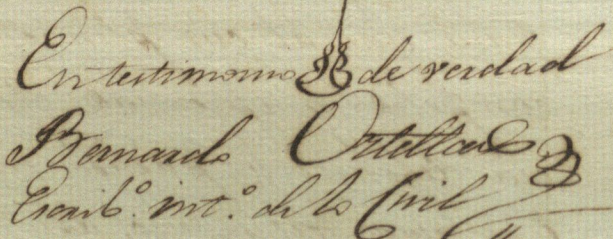 En testimonio de verdad
Bernardo Ortellado
Escrib.º int.º de lo Civil